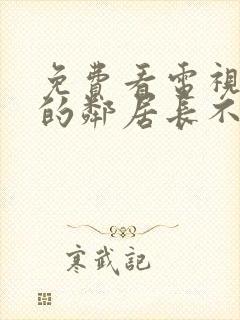 免費看電視
的鄰居長不
寒武記